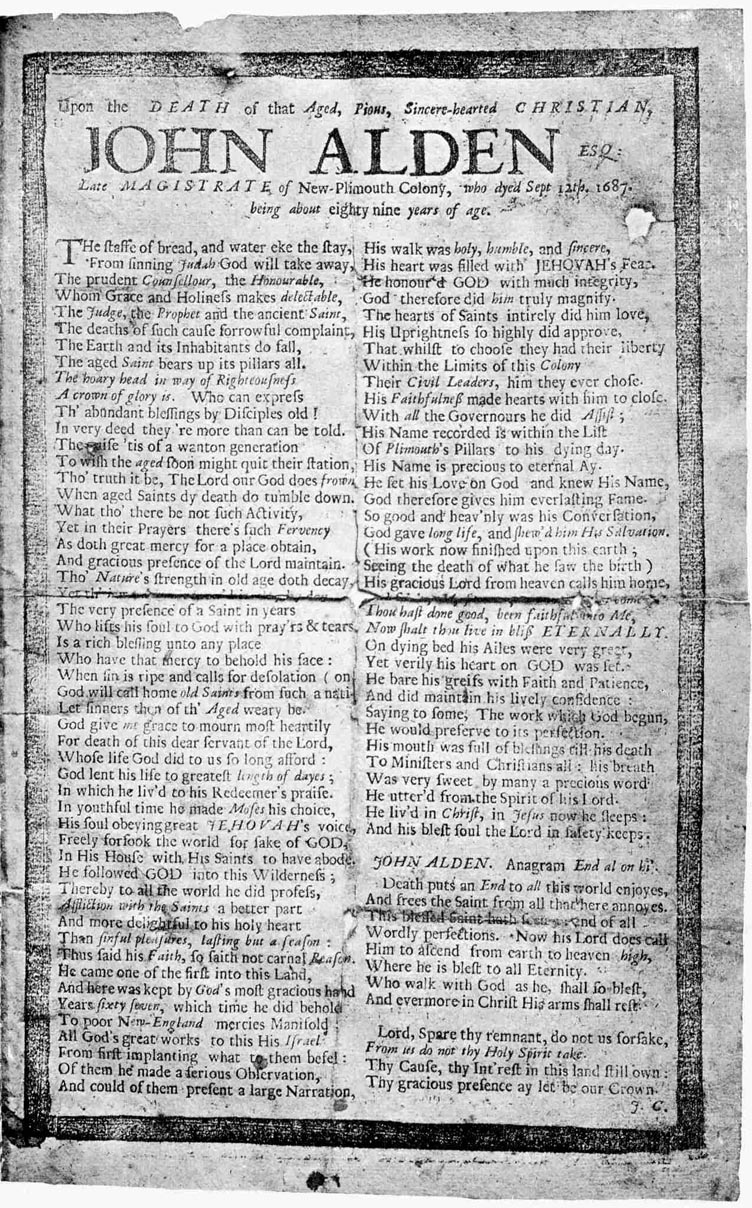 Upon the DEATH of that Aged, Pious, Sincere-hearted CHRISTIAN,
JOHN ALDEN ESQ:
Late MAGISTRATE of New-Plimouth Colony, who dyed Sept 12th. 1687.
being about eighty nine years of age.
THe ſtaffe of bread, and water eke the ſtay,
From ſinning Judah God will take away,
The prudent Counſellour, the Honourable,
Whom Grace and Holineſs makes delectable,
The Judge, the Prophet and the ancient Saint,
The deaths of ſuch cauſe ſorrowful complaint,
The Earth and its Inhabitants do fall,
The aged Saint bears up its pillars all.
The hoary head in way of Righteouſneſs
A crown of glory is. Who can expreſs
Th' abundant bleſſings by Diſciples old !
In very deed they 're more than can be told.
The guiſe 'tis of a wanton generation
To wiſh the aged ſoon might quit their ſtation,
Tho' truth it be, The Lord our God does frown
When aged Saints dy death do tumble down.
What tho' there be not ſuch Activity,
Yet in their Prayers there's ſuch Fervency
As doth great mercy for a place obtain,
And gracious preſence of the Lord maintain.
Tho' Nature's ſtrength in old age doth decay,
The very preſence of a Saint in years
Who lifts his ſoul to God with pray'rs & tears,
Is a rich bleſſing unto any place
Who have that mercy to behold his face :
When ſin is ripe and calls for deſolation ( on
God will call home old Saints from ſuch a nati-
Let ſinners then of th' Aged weary be.
God give me grace to mourn moſt heartily
For death of this dear ſervant of the Lord,
Whoſe life God did to us ſo long afford :
God lent his life to greateſt length of dayes ;
In which he liv'd to his Redeemer's praiſe.
In youthful time he made Moſes his choice,
His ſoul obeying great JEHOVAH's voice,
Freely forſook the world for ſake of GOD,
In His Houſe with His Saints to have abode.
He followed GOD into this Wilderneſs ;
Thereby to all the world he did profeſs,
Affliction with the Saints a better part
And more delightful to his holy heart
Than ſinful pleaſures, taſting but a ſeaſon :
Thus ſaid his Faith, ſo ſaith not carnal Reaſon.
He came one of the firſt into this Land,
And here was kept by God's moſt gracious hand
Years ſixty ſeven, which time he did behold
To poor New-England mercies Manifold :
All God's great works to this His Iſrael
From firſt implanting what to them befel :
Of them he made a ſerious Obſervation,
And could of them preſent a large Narration,
His walk was holy, humble, and ſincere,
His heart was filled with JEHOVAH's Fear.
He honour'd GOD with much integrity,
God therefore did him truly magnify.
The hearts of Saints intirely did him love,
His Uprightneſs ſo highly did approve,
That whilſt to chooſe they had their liberty
Within the Limits of this Colony
Their Civil Leaders, him they ever choſe.
His Faithfulneß made hearts with him to cloſe.
With all the Governours he did Aſſiſt ;
His Name recorded is within the Liſt
Of Plimouth's Pillars to his dying day.
His Name is precious to eternal Ay.
He ſet his Love on God and knew His Name,
God therefore gives him everlaſting Fame.
So good and heav'nly was his Converſation,
God gave long life, and ſhew'd him His Salvation.
( His work now finiſhed upon this earth ;
Seeing the death of what he ſaw the birth )
His gracious Lord from heaven calls him home,
Thou haſt done good, been faithful unto Me,
Now ſhalt thou live in bliß ETERNALLY.
On dying bed his Ailes were very great,
Yet verily his heart on GOD was ſet.
He bare his greifs with Faith and Patience,
And did maintain his lively confidence :
Saying to ſome, The work which God begun,
He would preſerve to its perfection.
His mouth was full of bleſſings till his death
To Miniſters and Chriſtians all : his breath
Was very ſweet by many a precious word
He utter'd from the Spirit of his Lord.
He liv'd in Chriſt, in Jeſus now he ſleeps :
And his bleſt ſoul the Lord in ſafety keeps.
JOHN ALDEN. Anagram End al on hi'.
Death puts an End to all this world enjoyes,
And frees the Saint from all that here annoyes.
This bleſſed Saint hath end of all
Wordly perfections. Now his Lord does call
Him to aſcend from earth to heaven high,
Where he is bleſt to all Eternity.
Who walk with God as he, ſhall ſo bleſt,
And evermore in Chriſt His arms ſhall reſt.
Lord, Spare thy remnant, do not us forſake,
From us do not thy Holy Spirit take.
Thy Cauſe, thy Int'reſt in this land ſtill own :
Thy gracious preſence ay let be our Crown.
J. C.